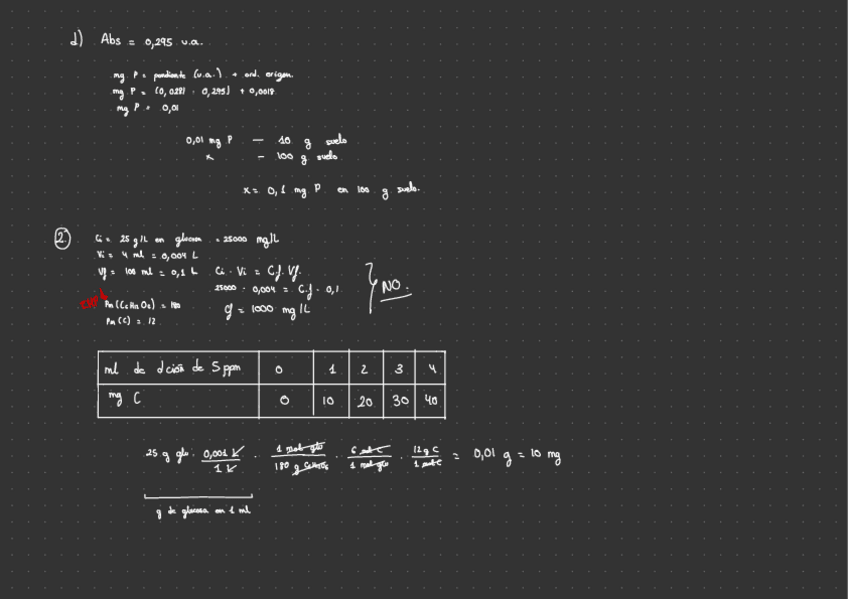 d) Abs = 0,295 u.a.
mg P = pendiente (u.a.) + ord. origen.
mg P = (0,0281 · 0,295) + 0,0018
mg P = 0,01
0,01 mg P — 10 g suelo
x — 100 g suelo
x = 0,1 mg P en 100 g suelo.
2. Ci = 25 g/L en glucosa = 25000 mg/L
Vi = 4 ml = 0,004 L
Vf = 100 ml = 0,1 L Ci · Vi = C.f. Vf.
25000 · 0,004 = C.f · 0,1
} NO.
Pm (C6H12O6) = 180
g = 1000 mg/L
Pm (C) = 12
ml de dción de 5 ppm 0 1 2 3 4
mg C 0 10 20 30 40
25 g glu · 0,001 L / 1 L · 1 mol glu / 180 g C6H12O6 · 6 mol C / 1 mol glu · 12 g C / 1 mol C = 0,01 g = 10 mg
g de glucosa en 1 ml